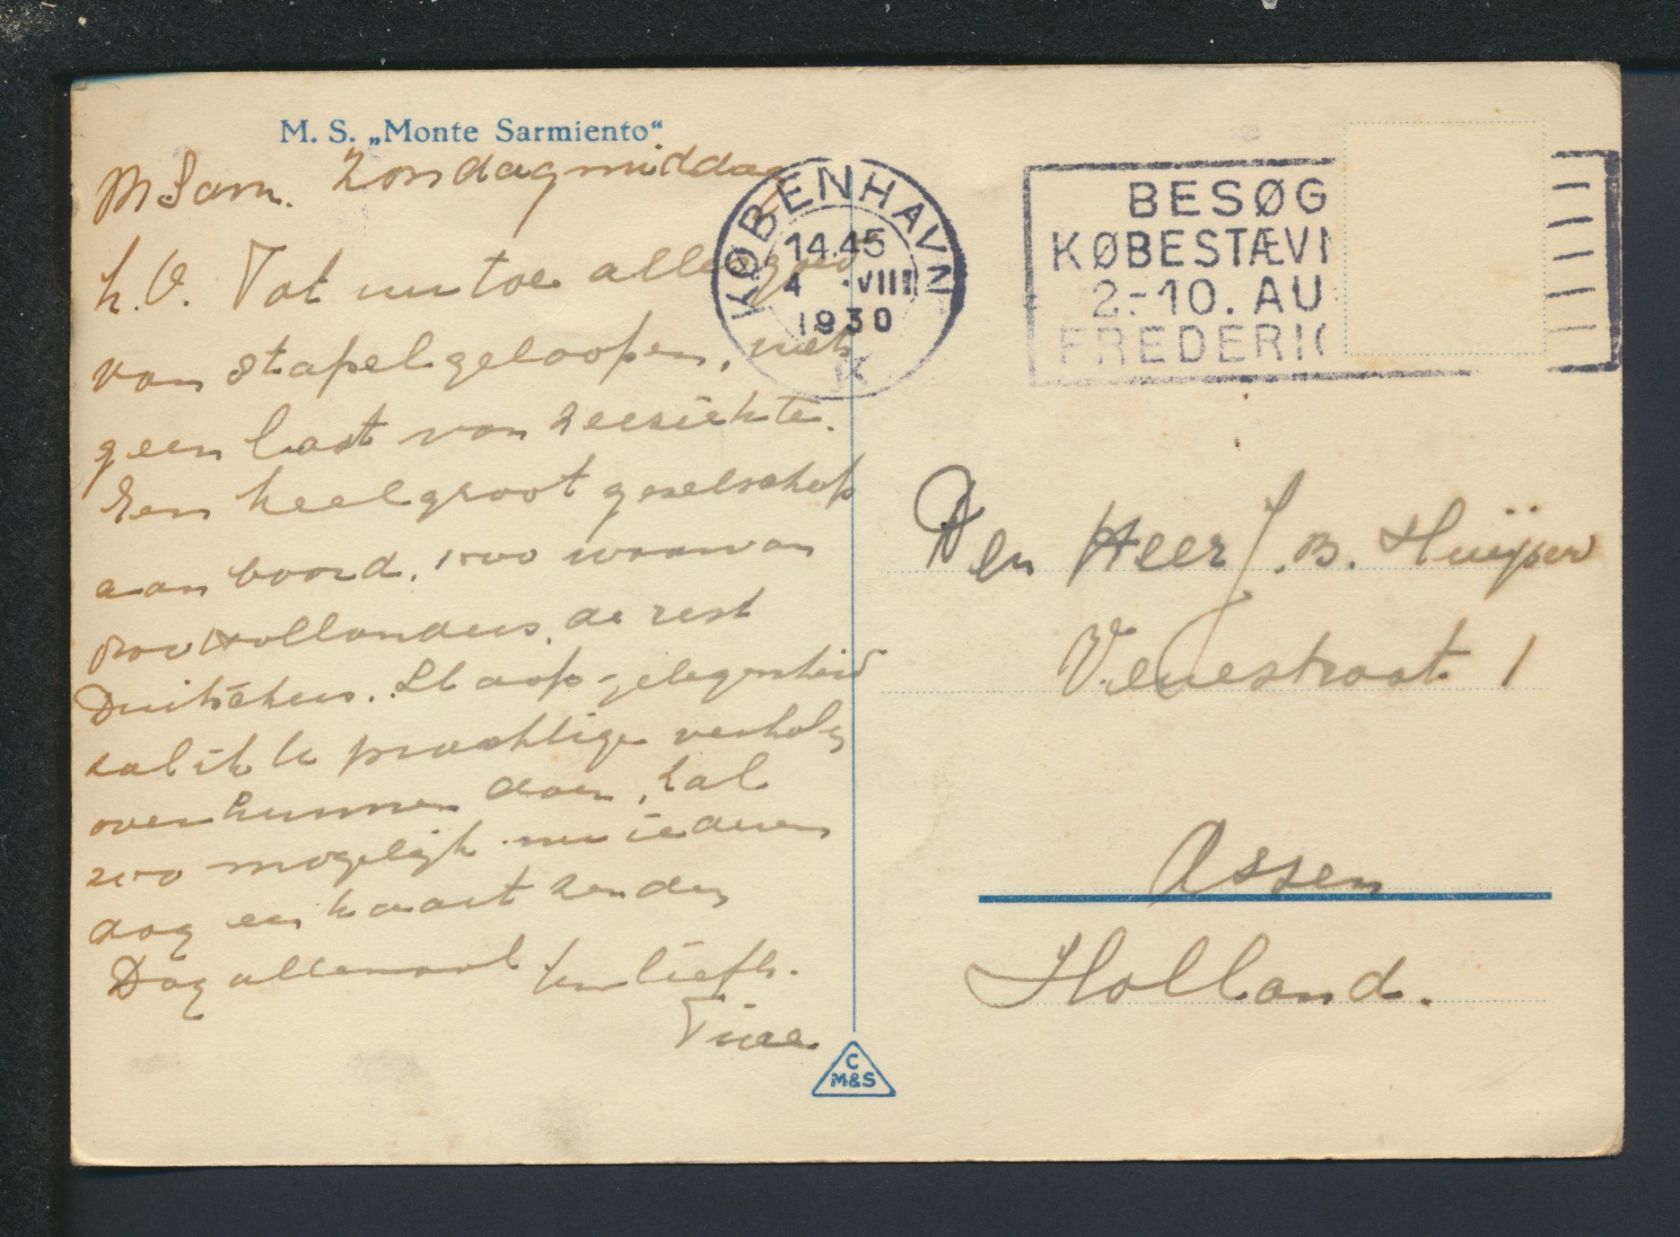 M. S. „Monte Sarmiento“
M Sarm. Zondagmiddag
h. V. Tot nu toe alles goed
van stapel geloopen, niets
geen last van zeeziekte.
Een heel groot gezelschap
aan boord, 1500 waarvan
Hollanders, de rest
Duitschers. Bij
zal ik U prachtige verhalen
over kunnen doen, zal
zoo mogelijk nu iederen
dag een kaart zenden
Dag allemaal liefh.
KØBENHAVN
14.45
4 .VIII
1930
K
BESØG
KØBESTÆVN
2.-10. AU
FREDERIC
Den Heer J. B. Huijser
Venestraat 1
Assen
Holland.
C
M&S